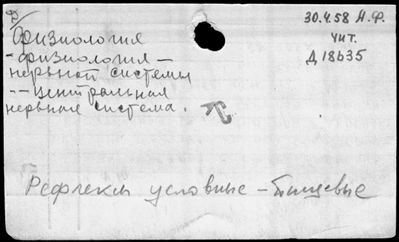 Д/
30.4.58 Н.Ф.
Физиология
чит.
- физиология -
Д 18635
нервной системы
-- центральная
нервная система.
Рефлексы условные - Пищевые